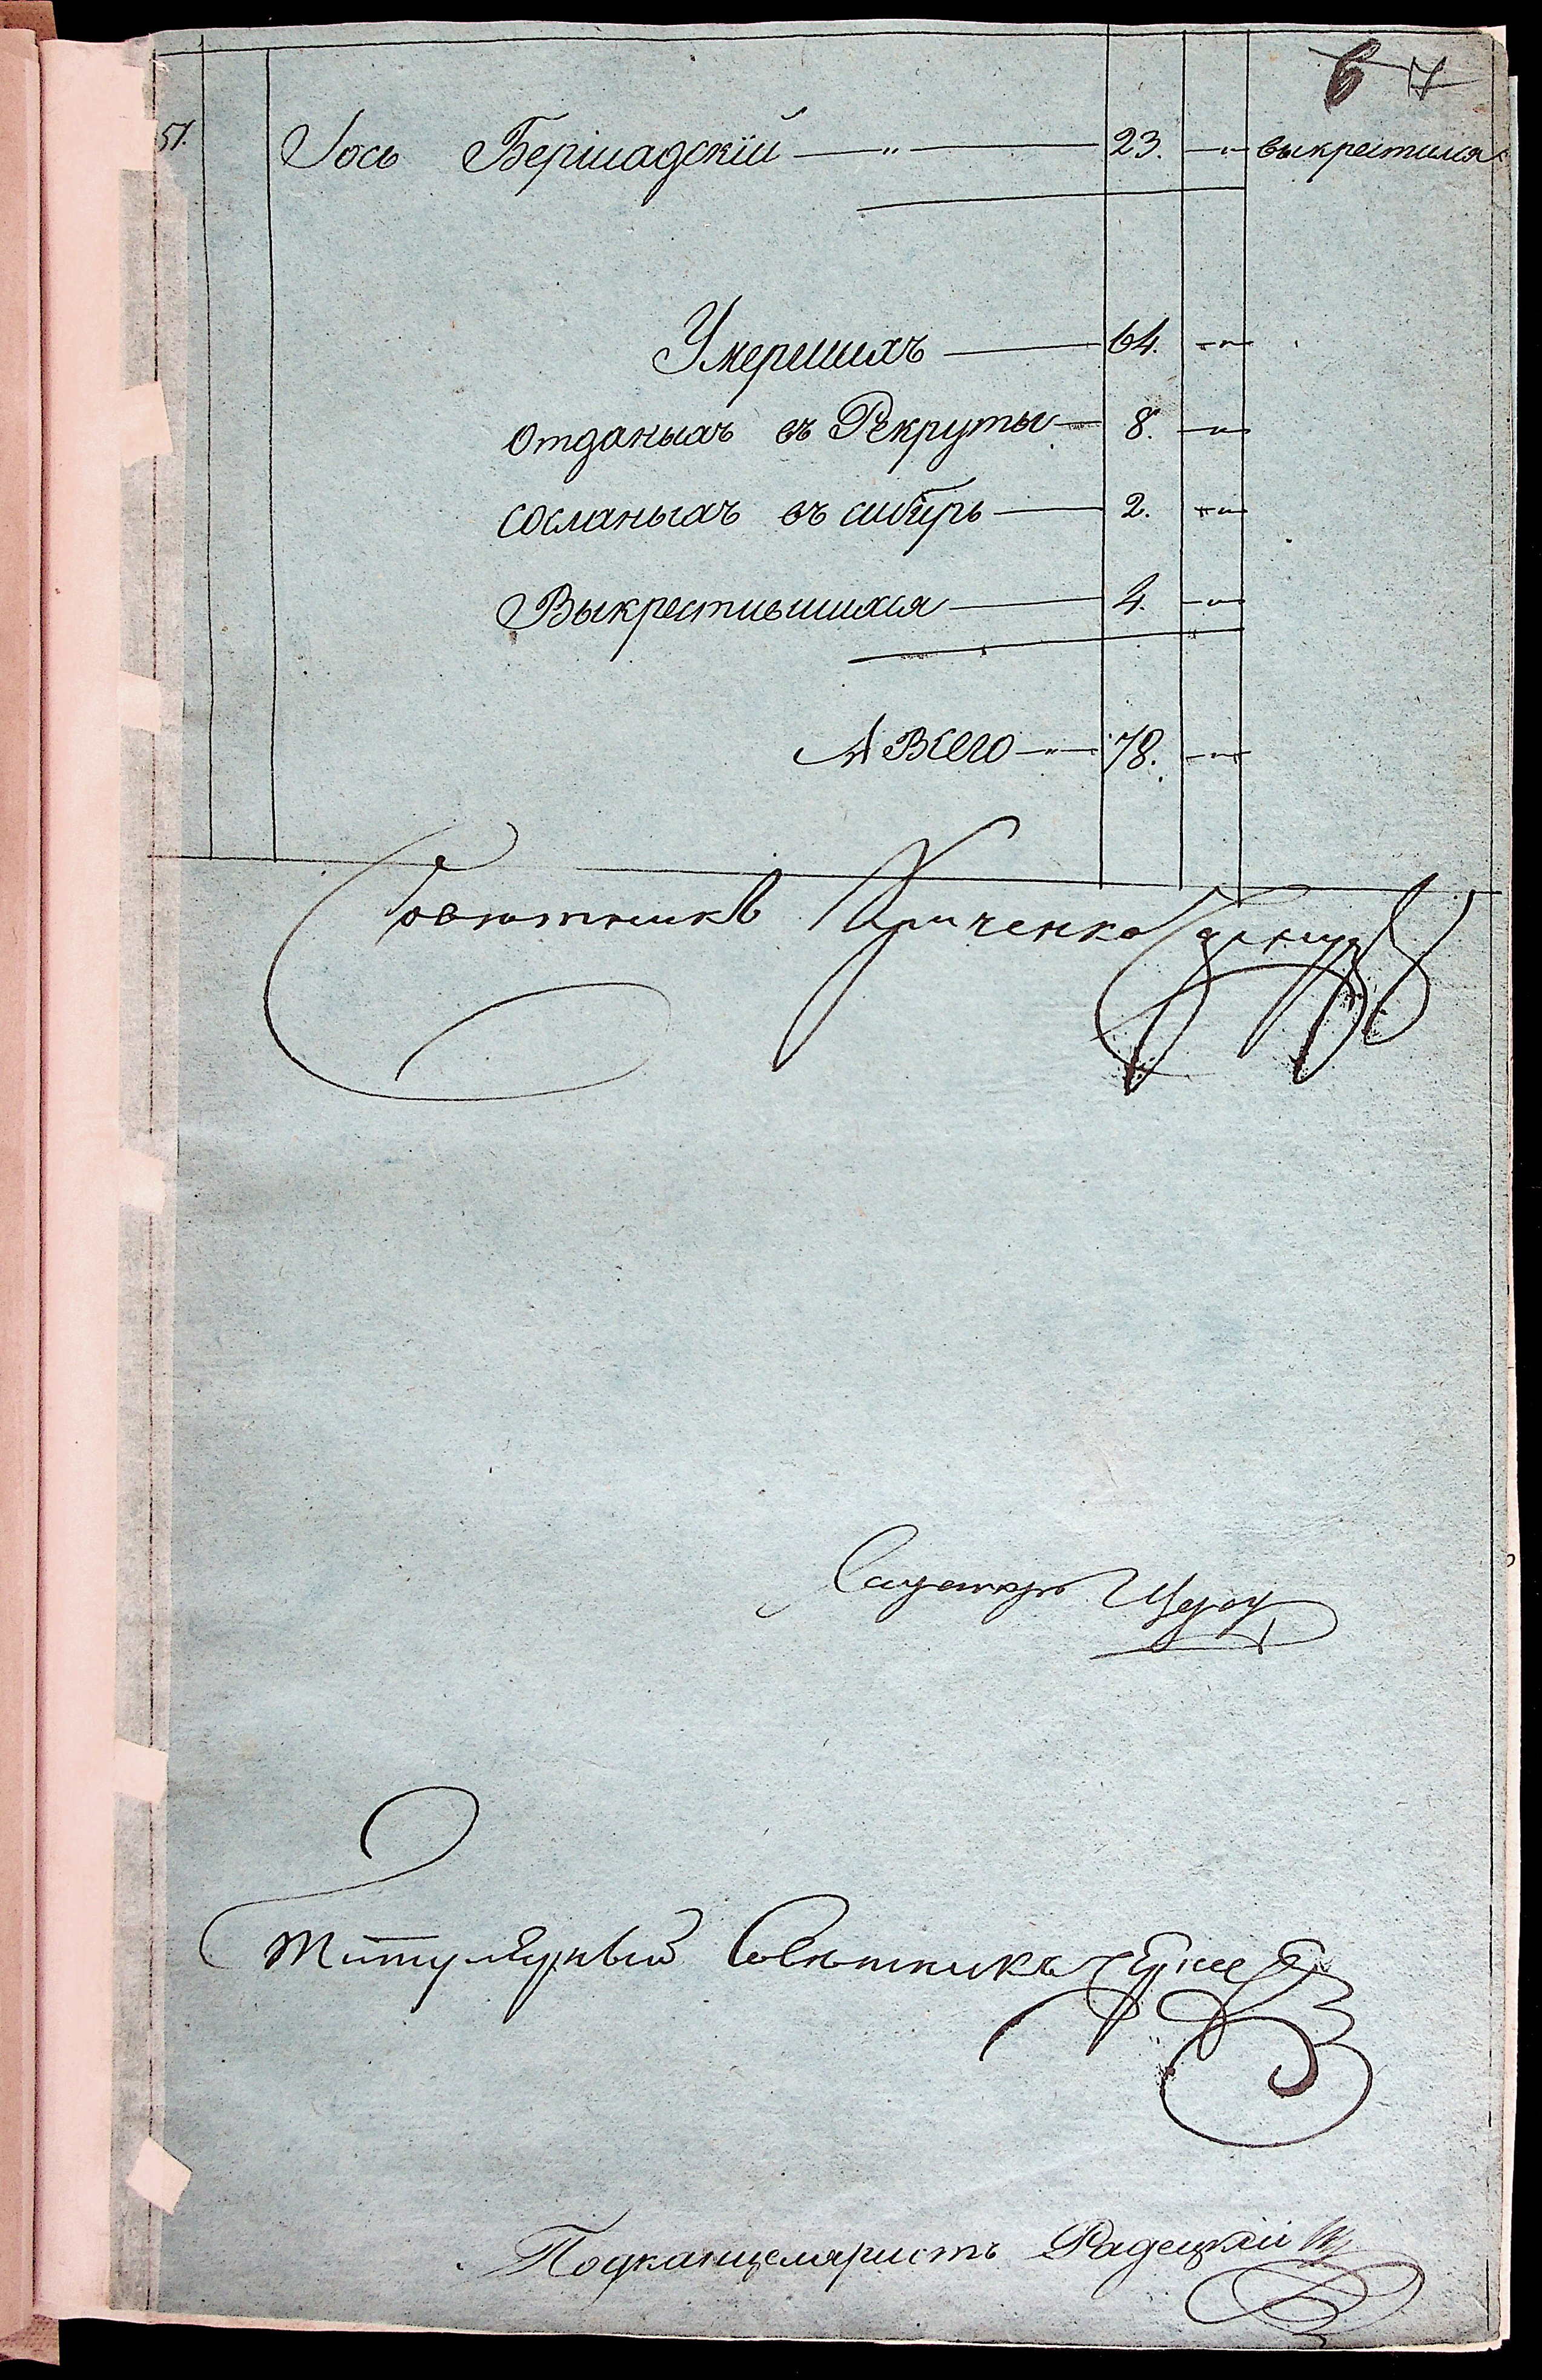 6 7
51. Iось Бершадскій — „ — 23. — „ — выкрестился
Умершихъ — 64. — „ —
отданыхъ въ Рекруты — 8. — „ —
сосланыхъ въ сибирь — 2. — „ —
Выкрестившихся — 4. — „ —
А Всего — „ — 78. — „ —
Совѣтникъ
Титулярный Совѣтникъ
Подканцеляристъ Радецкій